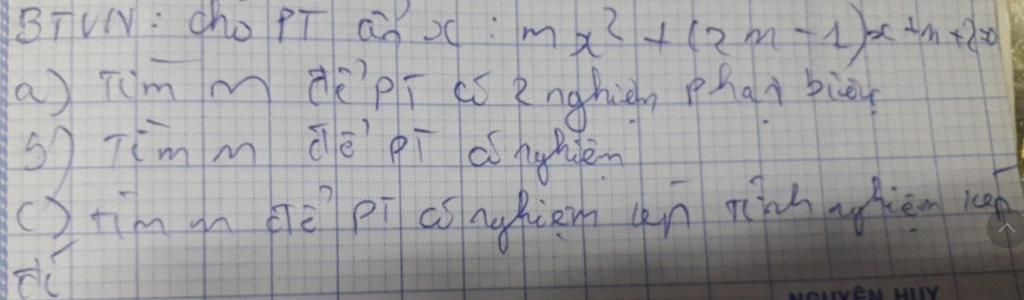 BTVN: cho PT ẩn x: mx² + (2m-1)x+m+2=0
a) Tìm m để PT có 2 nghiệm phận biệt
b) Tìm m để PT có nghiệm
c) tìm m để PT có nghiệm kép Tính nghiệm kép
đó
NGUYỄN HUY